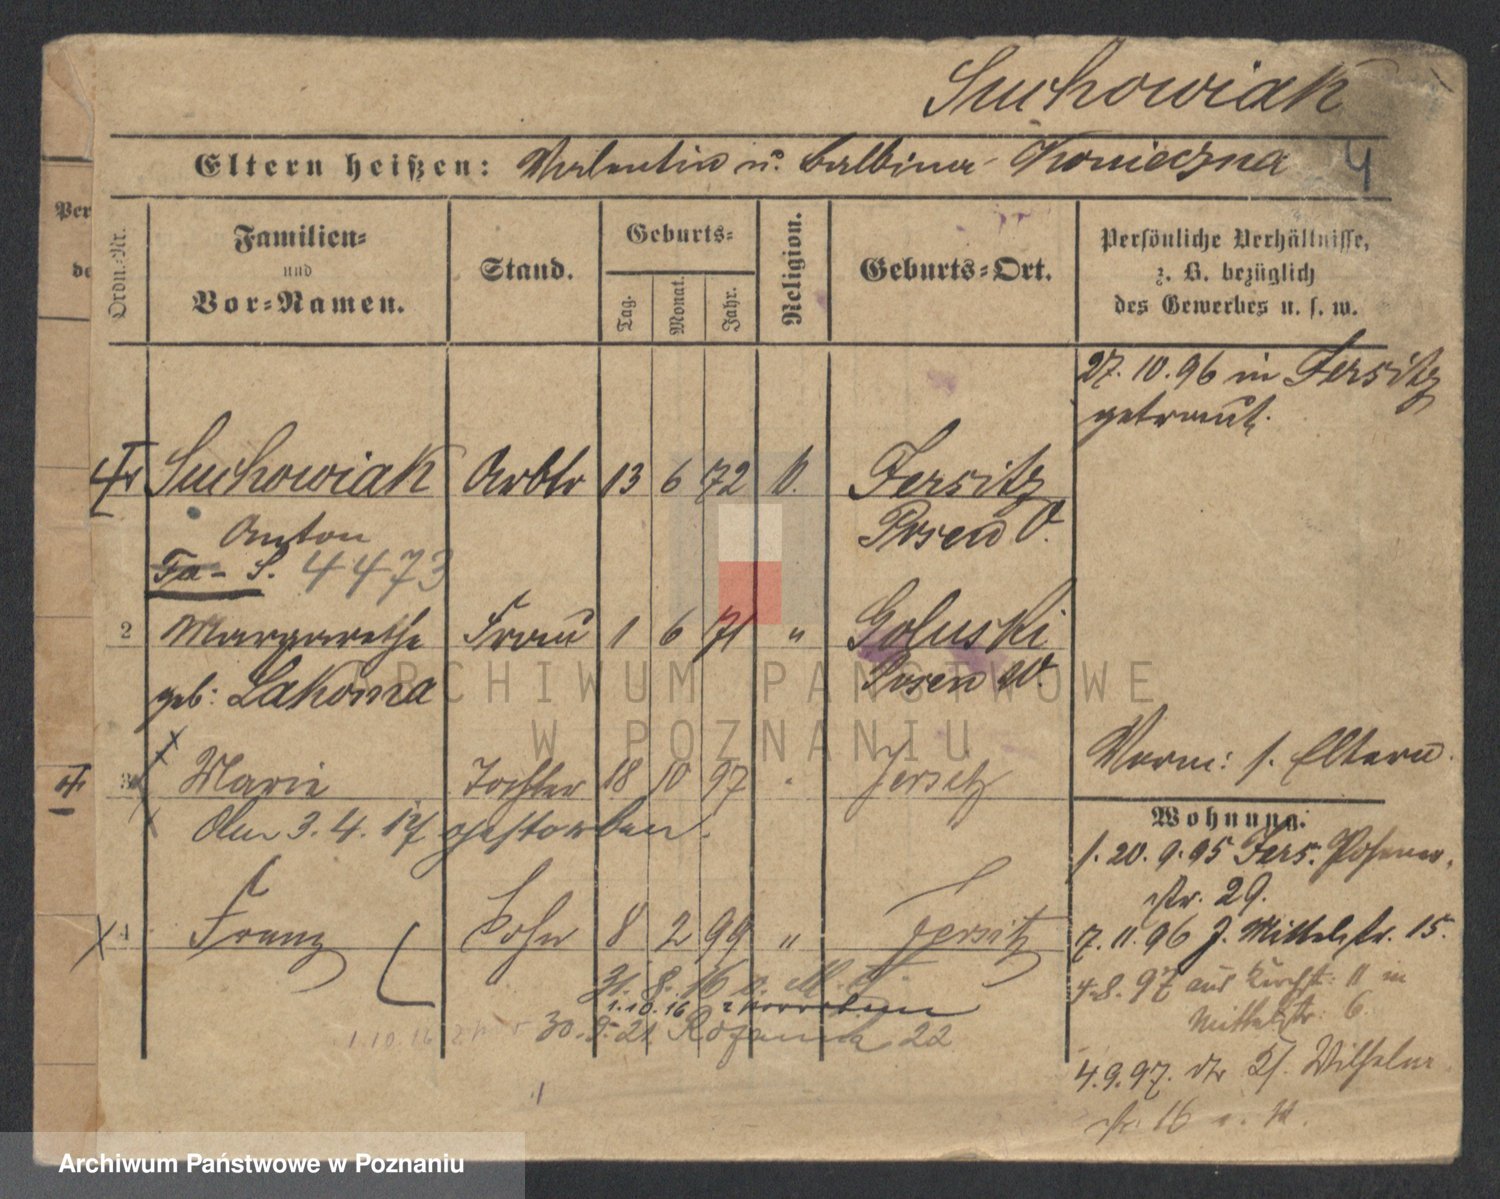 Suchowiak
Eltern heißen: Valentin u. Balbina Konieczna 4
Per
de
Ordn.-Nr.
Familien-
und
Vor-Namen.
Stand.
Geburts-
Tag.
Monat.
Jahr.
Religion.
Geburts-Ort.
Persönliche Verhältnisse,
z. B. bezüglich
des Gewerbes u. s. w.
27.10.96 in Jersitz
getraut.
Suchowiak Arbtr 13 6 72 k. Jersitz
Anton Posen O.
Fa- S. 4473
2 Margarethe Frau 1 6 71 " Goluski
geb: Lakoma Posen W.
3 Marie Tochter 18 10 97 Jersitz
Am 3.4.17 gestorben.
4 Franz Sohn 8 2 99 " Jersitz
31.8.16
1.10.16
30.9.21 22
1.10.16
Vorm: s. Eltern.
Wohnung:
1.20.9.95 Jers. Posener-
str. 29.
7.11.96 J. Mittelstr. 15.
4.8.97 aus Kirchstr. 11 in
Mittelstr. 6.
4.9.97. Wilhelm
str. 16
ARCHIWUM PAŃSTWOWE
W POZNANIU
Archiwum Państwowe w Poznaniu